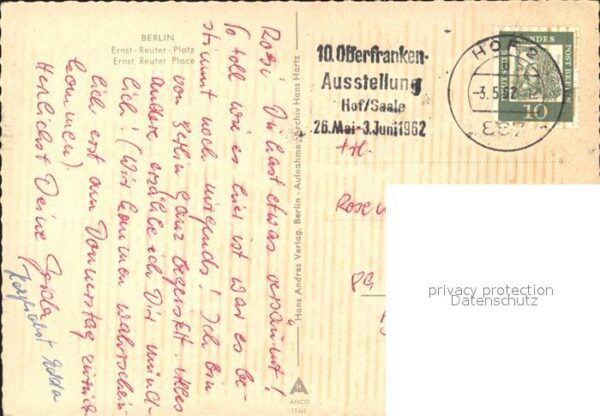 BERLIN
Ernst-Reuter-Platz
Ernst Reuter Place
Rosi! Du hast etwas versäumt!
So toll wie es hier ist war es be-
stimmt noch nirgends! Ich bin
von Berlin ganz begeistert. Alles
andere erzähle ich Dir münd-
lich! (Wir kommen wahrschein-
lich erst am Donnerstag zurück
kommen)
Herlichst Deine
Hans Andres Verlag, Berlin - Aufnahme: Archiv Hans Hartz
ANCO
10. Oberfranken-
Ausstellung
Hof/Saale
26. Mai - 3. Juni 1962
HOF 2
-3.5.62-12
DEUTSCHE BUNDESPOST BERLIN
10
Frl.
privacy protection
Datenschutz